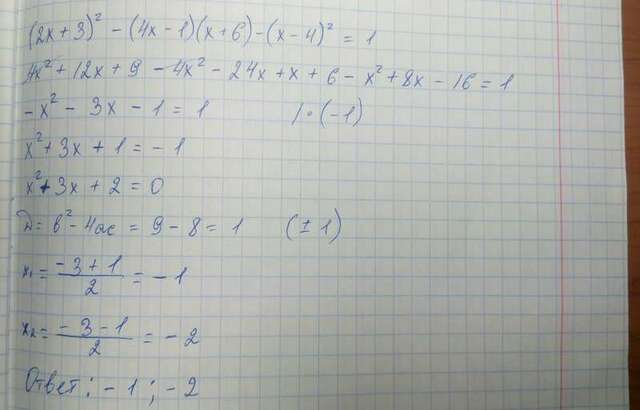 (2x+3)² - (4x-1)(x+6) - (x-4)² = 1
4x² + 12x + 9 - 4x² - 24x + x + 6 - x² + 8x - 16 = 1
-x² - 3x - 1 = 1 / · (-1)
x² + 3x + 1 = -1
x² + 3x + 2 = 0
D = b² - 4ac = 9 - 8 = 1 (±1)
x₁ = (-3+1)/2 = -1
x₂ = (-3-1)/2 = -2
Ответ: -1; -2